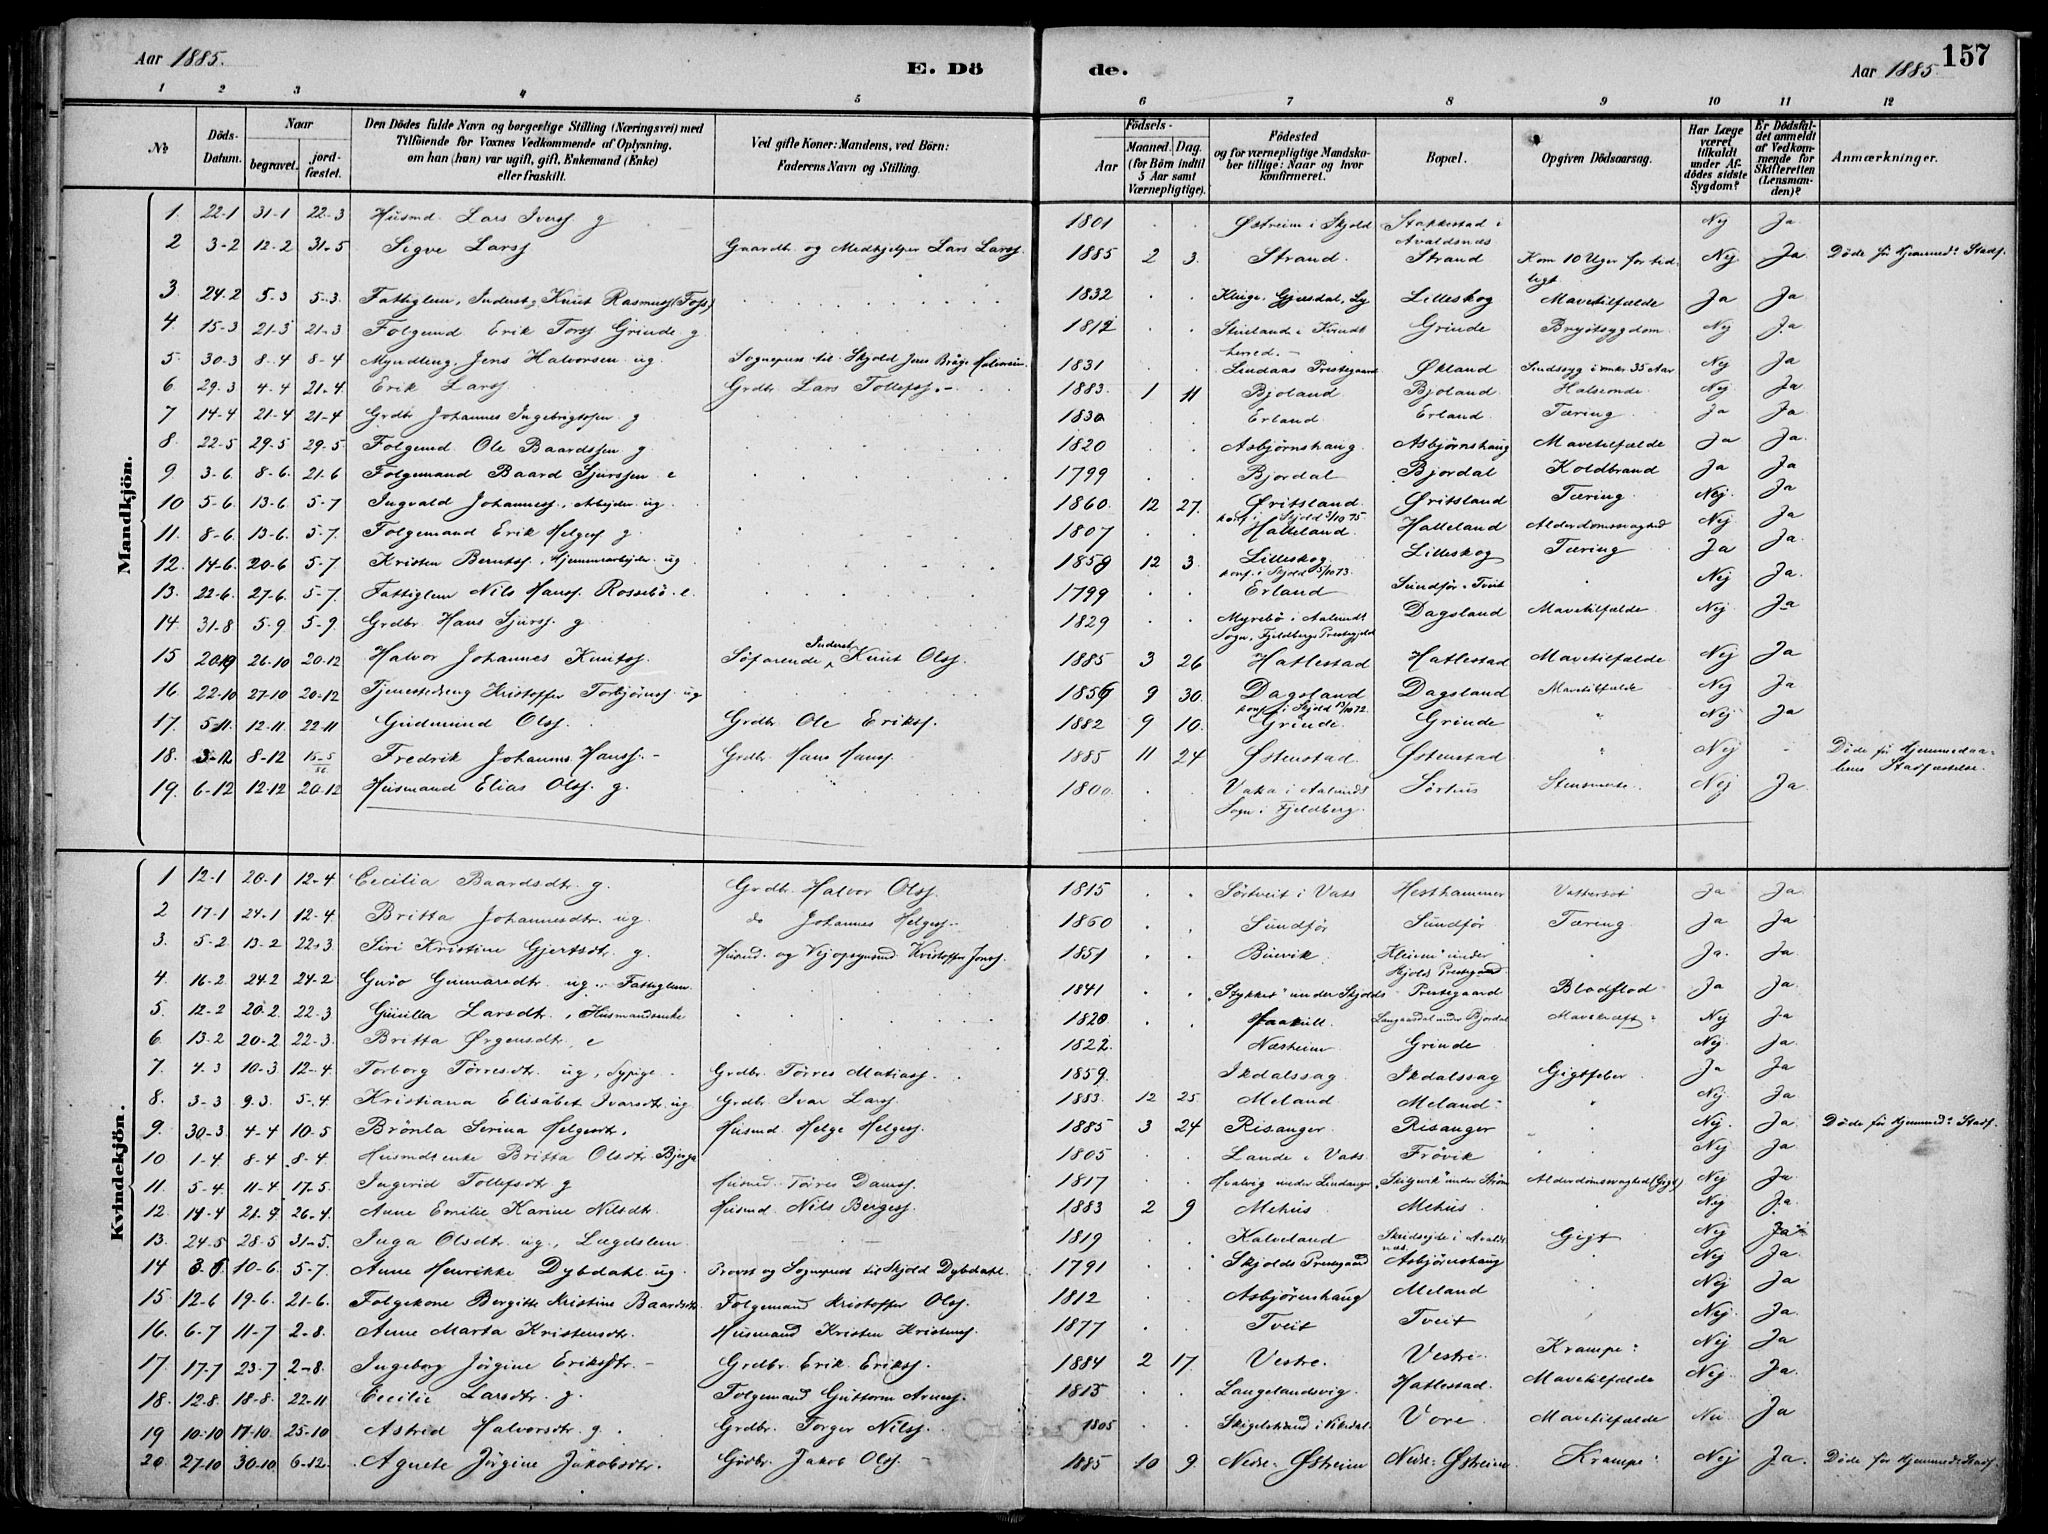 Aar 1885. E. Dö de. Aar 1885. 157
1 2 3 4 5 6 7 8 9 10 11 12
№ Döds-Datum. Naar begravet. jordfæstet. Den Dödes fulde Navn og borgerlige Stilling (Næringsvei) med Tilföiende for Voxnes Vedkommende af Oplysning, om han (hun) var ugift, gift, Enkemand (Enke) eller fraskilt. Ved gifte Koner: Mandens, ved Börn: Faderens Navn og Stilling. Födsels- Aar Maaned. Dag. (for Börn indtil 5 Aar samt Værnepligtige). Födested og for værnepligtige Mandskaber tillige: Naar og hvor konfirmeret. Bopæl. Opgiven Dödsaarsag. Har Læge været tilkaldt under Afdödes sidste Sygdom? Er Dödsfaldet anmeldt af Vedkommende for Skifteretten (Lensmanden)? Anmærkninger.
Mandkjön.
1. 22-1 31-1 22-3 Husmd. Lars Iverss. g 1801 Østreim i Skjold Stokkestad i Avaldsnæs Nej Ja
2 3-2 12-2 31-5 Sigve Larss. Gaardbr. og Medhjelper Lars Larss. 1885 2 3. Strand. Strand Kom 10 Uger for tidligt Nej Ja. Døde før Hjemmed: Stadf.
3 24-2 5-3 5-3. Fattiglem, Inderst, Knut Rasmuss (Foss) 1832 Gjesdal, Lilleskog Mavetilfælde Ja Ja.
4 15-3 21-3 21-3 Folgemd Erik Torss Grinde g 1812 i Kvindherred.- Grinde Brystsygdom Nej Ja
5. 30-3 8-4 8-4 Myndling, Jens Halvorsen ug. Sognepræst til Skjold Jens Halvorsen. 1831 Lindaas Prestegaard Økland Sindssyg i omkr 35 Aar Nej Ja
6 29-3 4-4 21-4 Erik Larss Grdbr. Lars Tollefss.- 1883. 1 11 Bjoland Bjoland. Halsonde Nej. Ja
7 14-4 21-4 21-4 Grdbr Johannes Ingebrigtsen g 1830 Erland. Erland. Tæring. Ja Ja.
8. 22-5 29-5 29-5. Folgemd Ole Baardssen g 1820 Asbjørnshaug. Asbjørnshaug Mavetilfælde Ja Ja.
9 3-6. 8-6. 21-6 Folgemand Baard Sjurssen e 1799 Bjordal Bjordal Koldbrand Ja Ja
10 5-6 13-6 5-7 Ingvald Johanness., Arbejder ug. 1860 12 27. Øritsland. konf. i Skjold 3/10 75. Øritsland Tæring. Nej. Ja
11. 8-6 13-6. 5-7. Folgemand Erik Helgess g. 1807 Hatteland. Hatteland Alderdomssvaghed Nej. Ja
12. 14-6. 20-6 5-7 Kristen Berntss., Hjemmearbejder. ug 1859 12 3. Lilleskog. konf. i Skjold 5/10 73. Lilleskog Tæring Ja Ja.
13. 22-6. 27-6. 5-7. Fattiglem Nils Hanss. Rossebø. e. 1799 Erland Sundfør Tveit Nej Ja.
14. 31-8 5-9 5-9. Grdbr. Hans Sjurss. g 1829 Myrebø i Aalunds Sogn, Fjeldbergs Prestegjeld Dagsland Mavetilfælde Nej. Ja
15 26-10 20-12 Halvor Johannes Knutss. Søfarende, Inderst Knut Olss. 1885 3 26 Hatlestad Hatlestad Mavetilfælde Nej Ja
16. 22-10 27-10 20-12 Tjenestedreng Kristoffer Torbjørnss ug 1856 9 30. Dagsland konf. i Skjold 13/10 72. Dagsland Mavetilfælde Nej Ja
17. 5-11. 12-11. 22-11 Gudmund Olss. Grdbr. Ole Erikss. 1882 9 10. Grinde. Grinde " Nej Ja
18. 3-12 8-12 15-5/86 Fredrik Johannes Hanss. - Grdbr. Hans Hanss. 1885 11 24 Østenstad. Østenstad " Nej - Døde før Hjemmedaabens Stadfæstelse.
19. 6-12 12-12 20-12 Husmand Elias Olss. g. 1800 Vaka i Aalunds Sogn i Fjeldberg. Sørhus Nej Ja.
Kvindekjön.
1 12-1 20-1 12-4 Cecilia Baardsdtr. g. Grdbr. Halvor Olss. 1815 Sørtveit i Vats Hesthammer Vattersot Ja Ja.
2 17-1 24-1 12-4. Britta Johannesdtr. ug. do Johannes Helgess.- 1860 Sundfør Sundfør Tæring. Ja Ja
3. 5-2 13-2 22-3. Siri Kristine Gjertsdtr. g. Husmd. og Vejopsynsmd Kristoffer Jonss. 1851 Buevik. under Skjolds Prestegaard " Ja. Ja
4 16-2. 24-2 24-2 Guro Gunnarsdtr ug. Fattiglem. 1841 "Stykket" under Skjolds Prestegaard Blodflod Ja Ja.
5. 12-2 20-2. 22-3 Gunilla Larsdtr., Husmandsenke 1820 Langaasdal under Bjordal Mavekræft Nej Ja
6 13-2 20-2 22-3. Britta Ørgensdtr. e 1822 Næsheim Grinde Nej. Ja.
7. 4-3 10-3 12-4 Torborg Tørresdtr. ug, Sypige. Grdbr. Tørres Matiass. 1859. Ikdalssag. Ikdalssag Gigtfeber Ja Ja
8. 3-3 9-3. 5-4. Kristiana Elisabet Ivarsdtr. ug Grdbr. Ivar Larss. 1883. 12 25. Meland Meland. " Nej. Ja
9. 30-3. 4-4 10-5 Brønla Serina Helgesdtr. Husmd. Helge Helgess. 1885 3 24 Risanger. Risanger " Nej. Ja. Døde før Hjemmed: Stadf.
10 1-4 8-4 8-4. Husmdsenke Britta Olsdtr. Bjerga 1805 Lande i Vats Frövik Nej Ja.
11. 5-4. 11-4 17-5. Ingerid Tollefsdtr g Husmd. Tøres Danss. 1817 Hvalvig under Lindanger "Skigvik" under Strøm Alderdomssvaghed (Gigt) Nej Ja
12. 14-4 21-4 26-4. Anne Emilie Karine Nilsdtr. Husmd. Nils Bergess. 1883 2 9 Mehus Mehus " Nej. Ja.
13. 24-5 28-5 31-5. Inga Olsdtr. ug., Lægdslem. 1819 Kalveland i Avaldsnæs. Gigt Nej Ja
14 3-6 10-6 5-7 Anne Henrikke Dybdahl ug. Provst og Sognepræst til Skjold Dybdahl. 1791 Skjolds Prestegaard Asbjørnshaug Nej Ja.
15. 12-6 19-6. 21-6. Folgekone Bergitte Kristine Baardsdtr. Folgemand Kristoffer Olss. 1812 Asbjørnshaug Meland Nej Ja
16. 6-7 11-7 2-8. Anne Marta Kristensdtr. Husmand Kristen Kristenss. 1877 Tveit Tveit Nej. Ja.
17. 17-7 23-7 2-8. Ingeborg Jörgine Eriksdtr. - Grdbr. Erik Erikss. 1884 2 17. Vestre. Vestre. Krampe Nej Ja
18. 12-8. 18-8. 22-11 Cecilie Larsdtr. g. Folgemand Guttorm Arness. 1815 Langelandsvig. Hatlestad. Mavetilfælde Nej. Ja.
19 10-10 17-10. 25-10 Astrid Halvorsdtr. g. Grdbr. Torger Nilss. 1805 Skigelstrand i Nikedal Vore. Mavetilfælde Nei. Ja
20 27-10 30-10 6-12. Agnete Jörgine Jakobsdtr. Grdbr. Jakob Olss. - 1885 10 9. Nedre Østreim Nedre Østreim. Krampe Nej Ja. Døde før Hjemmed: Stadf.